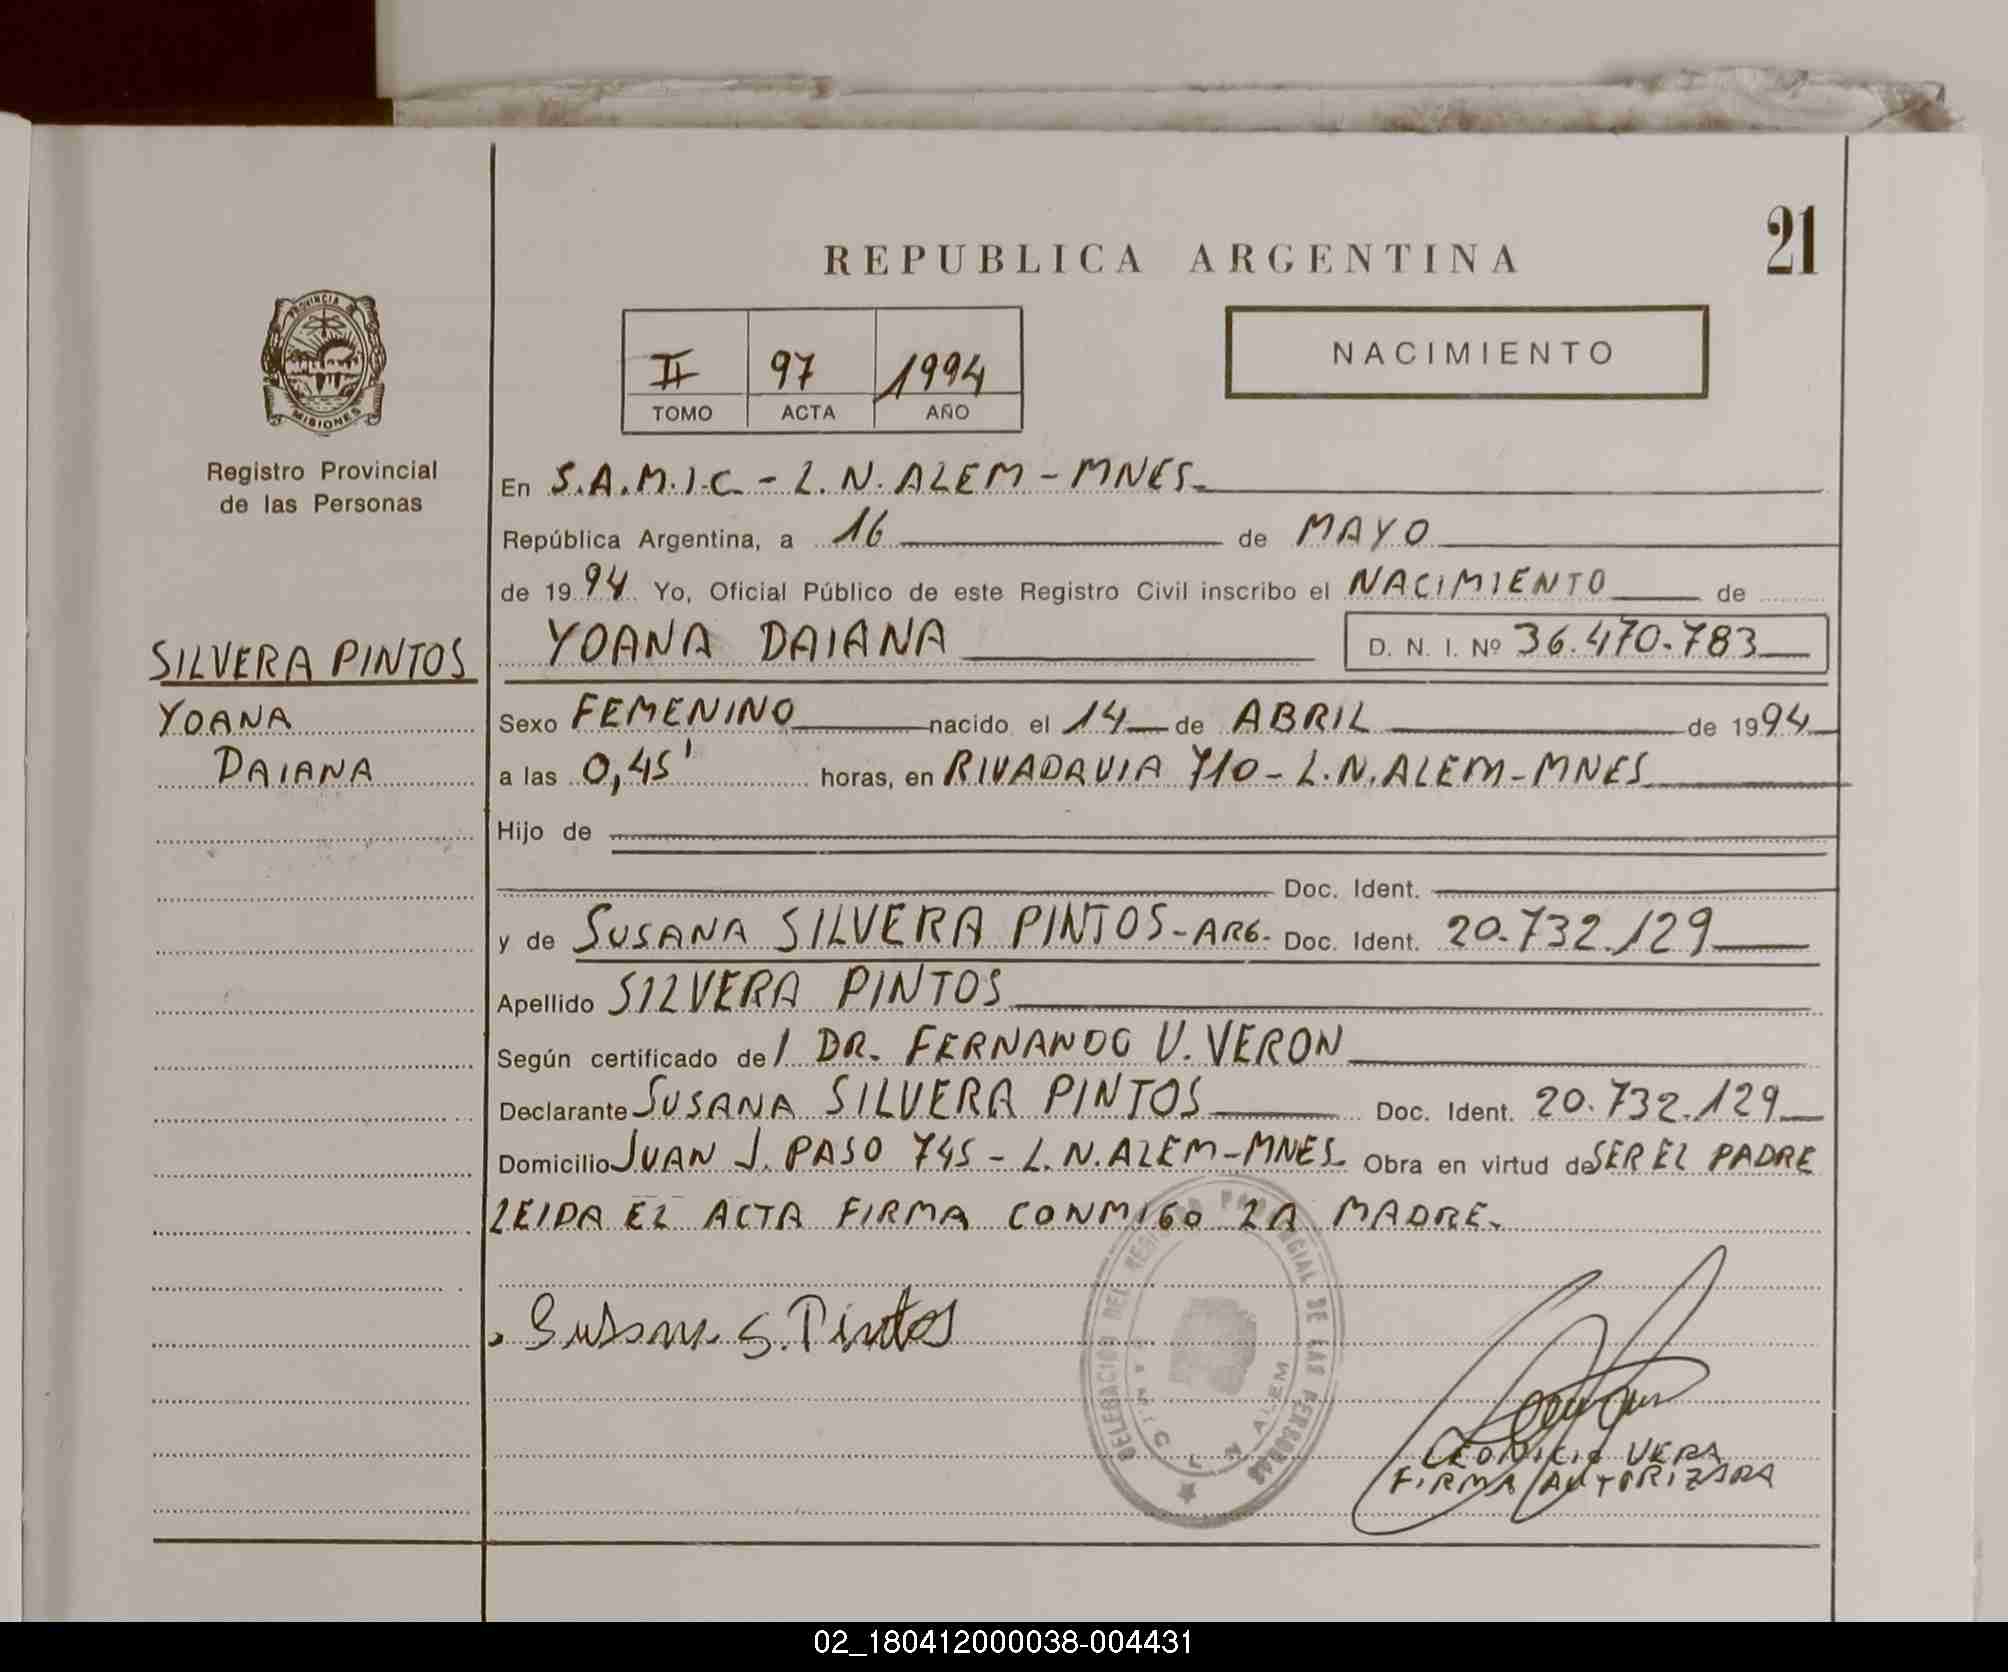 REPUBLICA ARGENTINA
21
PROVINCIA DE
MISIONES
Registro Provincial
de las Personas
II 97 1994
TOMO ACTA AÑO
NACIMIENTO
En S.A.M.I.C. - L.N. ALEM - MNES.
República Argentina, a 16 de MAYO
de 1994 Yo, Oficial Público de este Registro Civil inscribo el NACIMIENTO de
SILVERA PINTOS
YOANA
DAIANA
YOANA DAIANA D. N. I. Nº 36.470.783
Sexo FEMENINO nacido el 14 de ABRIL de 1994
a las 0,45' horas, en RIVADAVIA 710 - L.N. ALEM - MNES
Hijo de
Doc. Ident.
y de SUSANA SILVERA PINTOS - ARG. Doc. Ident. 20.732.129
Apellido SILVERA PINTOS
Según certificado de/ DR. FERNANDO V. VERON
Declarante SUSANA SILVERA PINTOS Doc. Ident. 20.732.129
Domicilio JUAN J. PASO 745 - L.N. ALEM - MNES. Obra en virtud de SER EL PADRE
LEIDA EL ACTA FIRMA CONMIGO LA MADRE.
Susana S. Pintos
DELEGACIÓN DEL REGISTRO PROVINCIAL DE LAS PERSONAS
L N ALEM
LEONICIO VERA
FIRMA AUTORIZADA
02_180412000038-004431